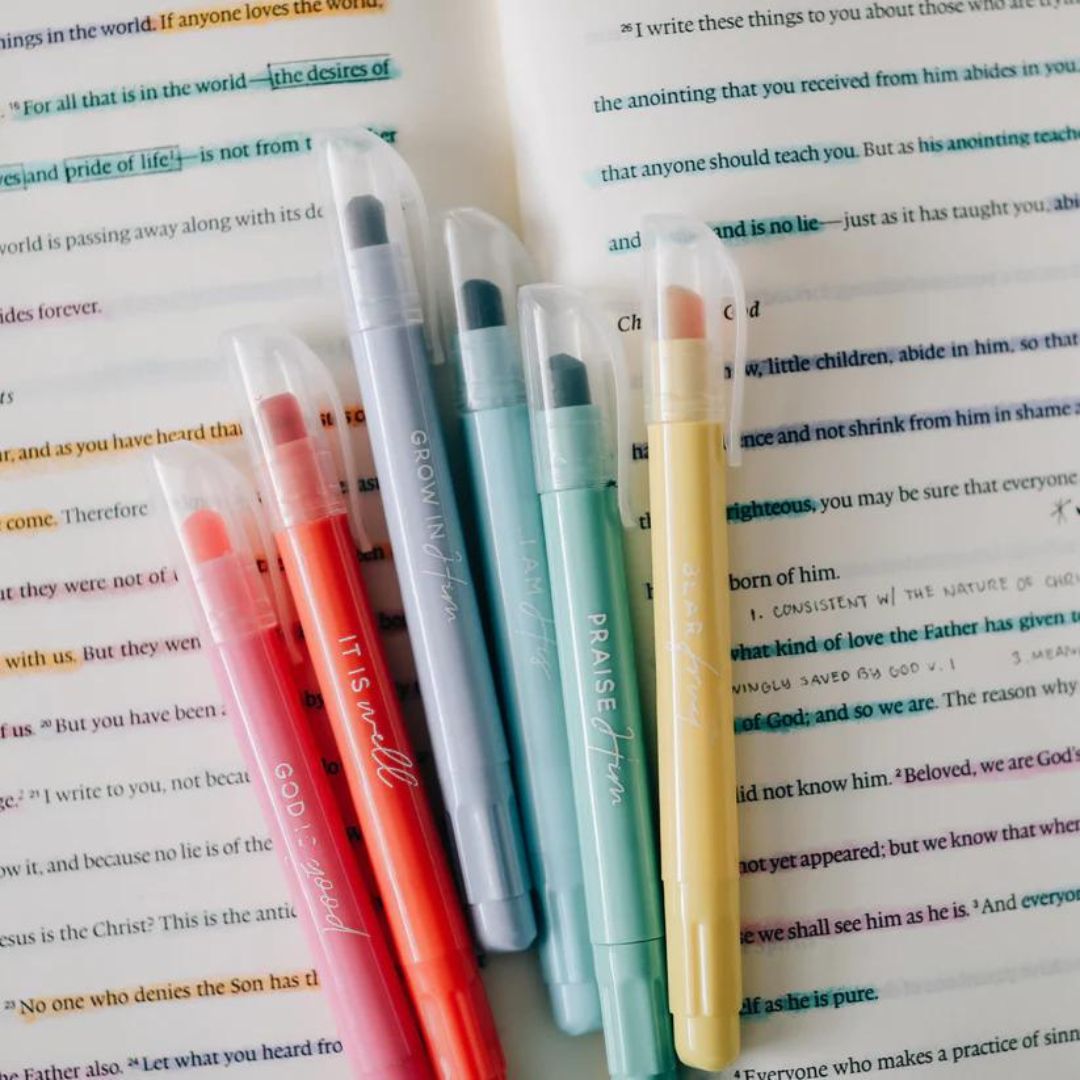 things in the world. If anyone loves the world,
. ¹⁶ For all that is in the world—the desires of
and pride of life—is not from
world is passing away along with its
forever.
and as you have heard that
come. Therefore
they were not of
with us. But they
of us. ²⁰ But you have been
²¹ I write to you, not
it, and because no lie is of the
Christ? This is the
²³ No one who denies the Son has
Father also. ²⁴ Let what you heard
²⁶ I write these things to you about those who are
the anointing that you received from him abides in you,
that anyone should teach you. But as his anointing
and and is no lie—just as it has taught you,
little children, abide in him, so that
and not shrink from him in shame
righteous, you may be sure that everyone
born of him.
1. CONSISTENT W/ THE NATURE OF
what kind of love the Father has given
SAVED BY GOD V. 1 3.
of God; and so we are. The reason why
did not know him. ² Beloved, we are God's
not yet appeared; but we know that when
we shall see him as he is. ³ And
as he is pure.
⁴ Everyone who makes a practice of
GOD IS good
IT IS well
GROW IN Him
I AM His
PRAISE Him